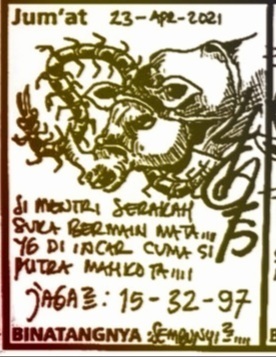 Jum'at 23-APR-2021
SI MENTRI SERAKAH
SUKA BERMAIN MATA,,,,
YG DI INCAR CUMA SI
PUTRA MAHKOTA,,,,
JAGA2 : 15-32-97
BINATANGNYA : SEMBUNYI2,,,,